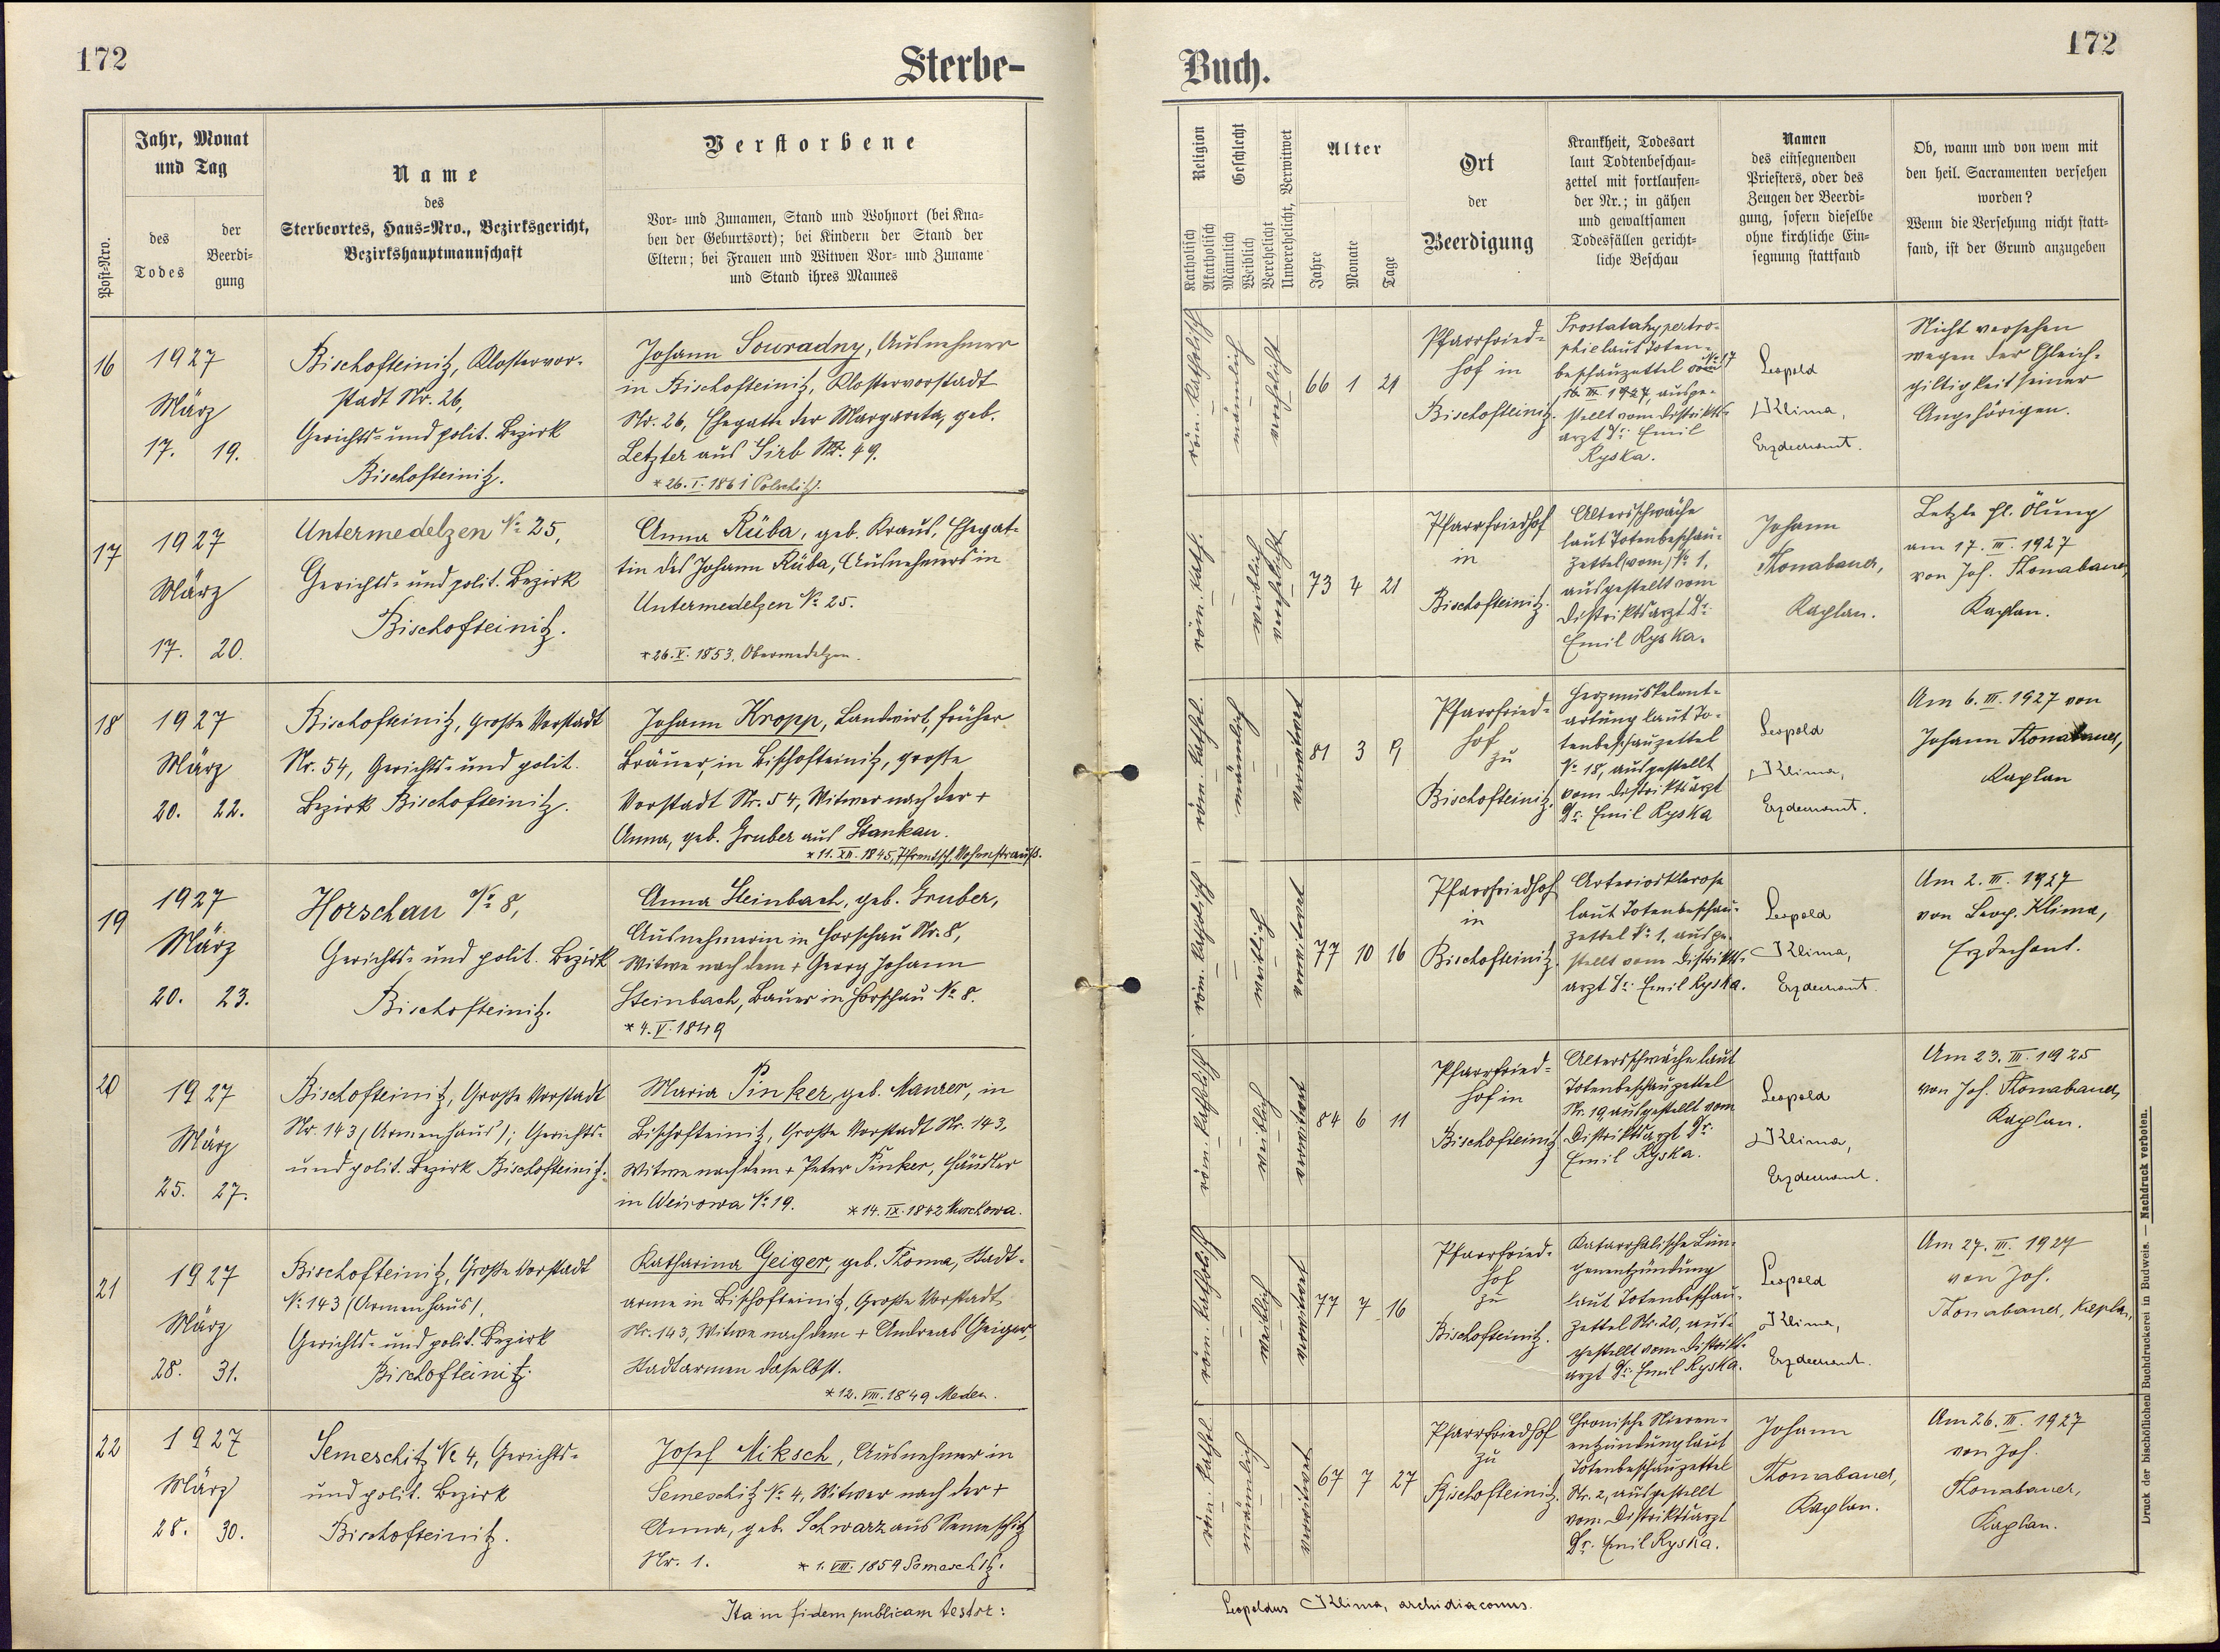 172
Sterbe-
Post-Nro.
Jahr, Monat
und Tag
des
Todes
der
Beerdi-
gung
Name
des
Sterbeortes, Haus-Nro., Bezirksgericht,
Bezirkshauptmannschaft
Verstorbene
Vor- und Zunamen, Stand und Wohnort (bei Kna-
ben der Geburtsort); bei Kindern der Stand der
Eltern; bei Frauen und Witwen Vor- und Zuname
und Stand ihres Mannes
16
1927
März
17. 19.
Bischofteinitz, Klostervor-
stadt Nr. 26,
Gerichts- und polit. Bezirk
Bischofteinitz.
Johann Souradny, Ausnehmer
in Bischofteinitz, Klostervorstadt
Nr. 26, Ehegatte der Margareta, geb.
Letzter aus Sirb Nr. 49.
* 26. I. 1861
17
1927
März
17. 20.
Untermedelzen No 25,
Gerichts- und polit. Bezirk
Bischofteinitz.
Anna Rüba, geb. Kraus, Ehegat-
tin des Johann Rüba, Ausnehmers in
Untermedelzen No 25.
* 26. X. 1853, Obermedelzen.
18
1927
März
20. 22.
Bischofteinitz, große Vorstadt
Nr. 54, Gerichts- und polit.
Bezirk Bischofteinitz.
Johann Kropp, Landwirt, früher
Bräuer, in Bischofteinitz, große
Vorstadt Nr. 54, Witwer nach der +
Anna, geb. Gruber aus Stankau.
* 11. XII. 1845, Pfrentsch, Vohenstrauß.
19
1927
März
20. 23.
Horschau No 8,
Gerichts- und polit. Bezirk
Bischofteinitz.
Anna Steinbach, geb. Gruber,
Ausnehmerin in Horschau Nr. 8,
Witwe nach dem + Georg Johann
Steinbach, Bauer in Horschau No 8.
* 4. V. 1849
20
1927
März
25. 27.
Bischofteinitz, Große Vorstadt
Nr. 143 (Armenhaus); Gerichts-
und polit. Bezirk Bischofteinitz.
Maria Pinker, geb. Maurer, in
Bischofteinitz, Große Vorstadt Nr. 143,
Witwe nach dem + Peter Pinker, Häusler
in Weirowa No 19. * 14. IX. 1842
21
1927
März
28. 31.
Bischofteinitz, Große Vorstadt
No 143 (Armenhaus),
Gerichts- und polit. Bezirk
Bischofteinitz.
Katharina Geiger, geb. Thoma, Stadt-
arme in Bischofteinitz, Große Vorstadt
Nr. 143, Witwe nach dem + Andreas Geiger,
Stadtarmen daselbst.
* 12. VIII. 1849 Meden.
22
1927
März
28. 30.
Semeschitz No 4, Gerichts-
und polit. Bezirk
Bischofteinitz.
Josef Miksch, Ausnehmer in
Semeschitz No 4, Witwer nach der +
Anna, geb. Schwarz aus Semeschitz
Nr. 1. * 1. VIII. 1859 Semeschitz.
Ita in fidem publicam testor:
Buch.
172
Religion
Katholisch
Akatholisch
Geschlecht
Männlich
Weiblich
Verehelicht
Unverehelicht, Verwitwet
Alter
Jahre
Monate
Tage
Ort
der
Beerdigung
Krankheit, Todesart
laut Todtenbeschau-
zettel mit fortlaufen-
der Nr.; in gähen
und gewaltsamen
Todesfällen gericht-
liche Beschau
Namen
des einsegnenden
Priesters, oder des
Zeugen der Beerdi-
gung, sofern dieselbe
ohne kirchliche Ein-
segnung stattfand
Ob, wann und von wem mit
den heil. Sacramenten versehen
worden?
Wenn die Versehung nicht statt-
fand, ist der Grund anzugeben
röm. katholisch
männlich
verehelicht
66 1 21
Pfarrfried-
hof in
Bischofteinitz.
Prostatahypertro-
phie laut Toten-
beschauzettel No 17 vom
18. III. 1927, ausge-
stellt vom Distrikts-
arzt Dr. Emil
Ryska.
Leopold
Klima,
Erzdechant.
Nicht versehen
wegen der Gleich-
giltigkeit seiner
Angehörigen.
röm. kath.
weiblich
verehelicht
73 4 21
Pfarrfriedhof
in
Bischofteinitz.
Altersschwäche
laut Totenbeschau-
zettel vom No 1,
ausgestellt vom
Distriktsarzt Dr.
Emil Ryska.
Johann
Thomabauer,
Kaplan.
Letzte hl. Ölung
am 17. III. 1927
von Joh. Thomabauer,
Kaplan.
röm. kathol.
männlich
verwitwet
81 3 9
Pfarrfried-
hof
zu
Bischofteinitz.
Herzmuskelent-
artung laut To-
tenbeschauzettel
No 18, ausgestellt
vom Distriktsarzt
Dr. Emil Ryska
Leopold
Klima,
Erzdechant.
Am 6. III. 1927 von
Johann Thomabauer,
Kaplan
röm. katholisch
weiblich
verwitwet
77 10 16
Pfarrfriedhof
in
Bischofteinitz.
Arteriosklerose
laut Totenbeschau-
zettel No 1, ausge-
stellt vom Distrikts-
arzt Dr. Emil Ryska.
Leopold
Klima,
Erzdechant.
Am 2. III. 1927
von Leop. Klima,
Erzdechant.
röm. katholisch
weiblich
verwitwet
84 6 11
Pfarrfried-
hof in
Bischofteinitz
Altersschwäche laut
Totenbeschauzettel
Nr. 19 ausgestellt vom
Distriktsarzt Dr.
Emil Ryska.
Leopold
Klima,
Erzdechant.
Am 23. III. 1925
von Joh. Thomabauer,
Kaplan.
röm. katholisch
weiblich
verwitwet
77 7 16
Pfarrfried-
hof
zu
Bischofteinitz.
Katarrhalische Lun-
genentzündung
laut Totenbeschau-
zettel Nr. 20, aus-
gestellt vom Distrikts-
arzt Dr. Emil Ryska.
Leopold
Klima,
Erzdechant.
Am 27. III. 1927
von Joh.
Thomabauer, Kaplan,
röm. kathol.
männlich
verwitwet
67 7 27
Pfarrfriedhof
zu
Bischofteinitz.
Chronische Nieren-
entzündung laut
Totenbeschauzettel
Nr. 2, ausgestellt
vom Distriktsarzt
Dr. Emil Ryska.
Johann
Thomabauer,
Kaplan.
Am 26. III. 1927
von Joh.
Thomabauer,
Kaplan.
Leopoldus Klima, archidiaconus.
Druck der bischöflichen Buchdruckerei in Budweis. — Nachdruck verboten.